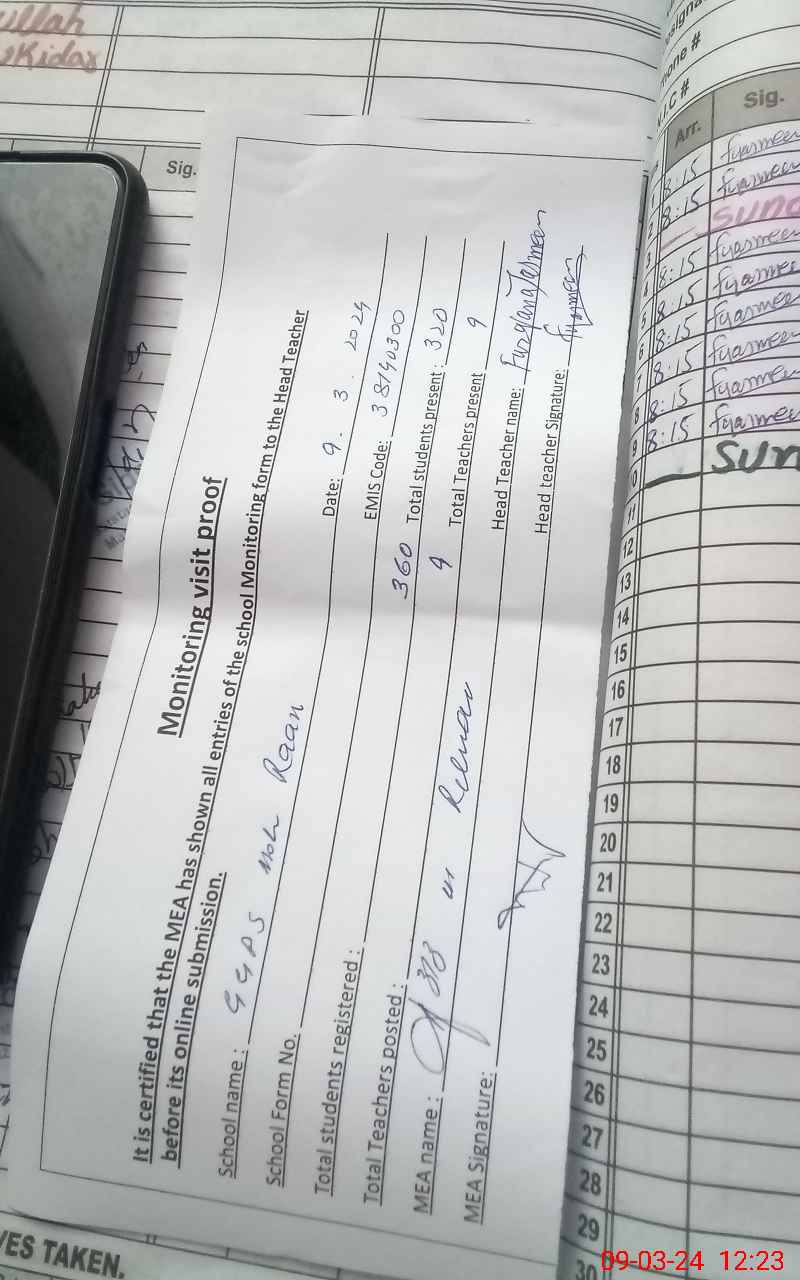 ullah
Kidar
Sig.
Monitoring visit proof
It is certified that the MEA has shown all entries of the school Monitoring form to the Head Teacher
before its online submission.
School name : GGPS Moh Raan Date: 9. 3. 2024
School Form No. EMIS Code: 38140300
Total students registered : 360 Total students present : 320
Total Teachers posted : 9 Total Teachers present 9
MEA name : ur Rehman Head Teacher name: Farzana Yasmeen
MEA Signature: Head teacher Signature: Fyasmeen
one #
I.C #
Arr. Sig.
1 8:15 Fyasmeen
2 8:15 Fyasmeen
3 Sund
4 8:15 Fyasmeen
5 8:15 Fyasmeen
6 8:15 Fyasmeen
7 8:15 Fyasmeen
8 8:15 Fyasmeen
9 8:15 Fyasmeen
0 Sun
11
12
13
14
15
16
17
18
19
20
21
22
23
24
25
26
27
28
29
30
VES TAKEN.
09-03-24 12:23